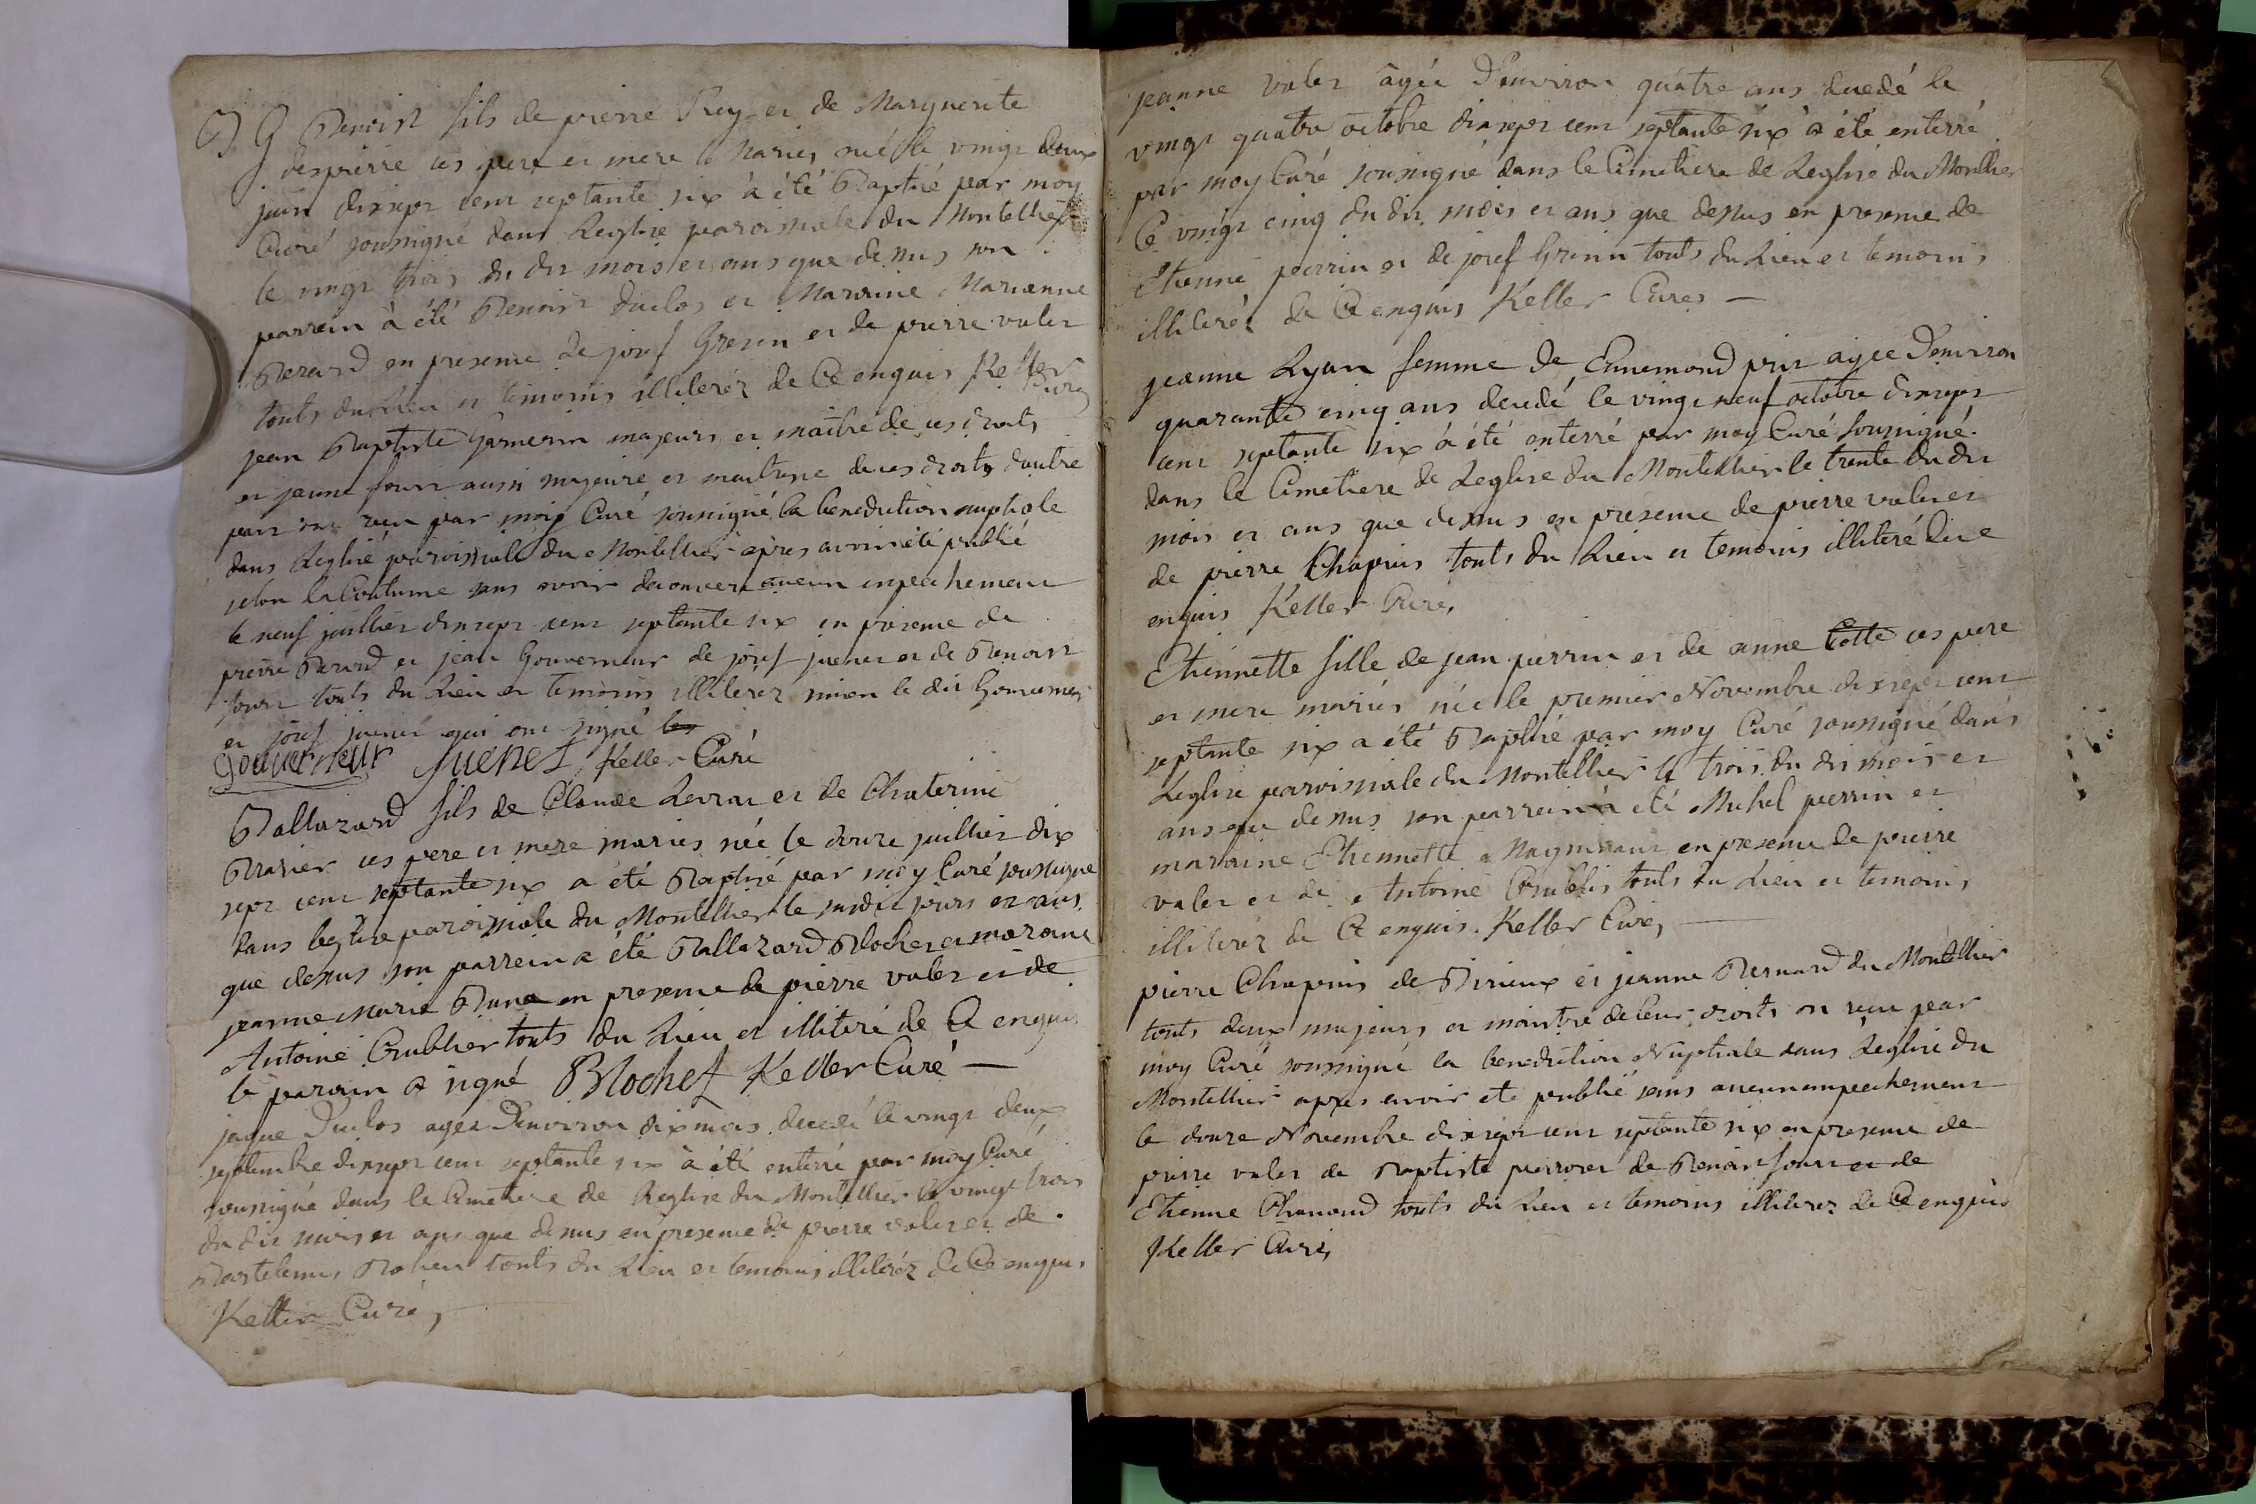 Benoist fils de pierre Rey er de Marguerite
despierre ces pere er mere Mariés né le vingt deux
juin dixsept cent septante six à été Baptisé par moy
Curé soussigné dans Leglise paroissiale du Montellier
le vingt trois du dit mois er ans que dessus son
parrein à été Benoist Duclos er Marraine Marianne
Berard en presence de josef Grenin er de pierre valer
touts du Lieu er temoins illiterez de Ce enquis Keller Curé
jean Baptiste Garnerin majeurs er maitre de ces droits
er jeanne four aussi majeure er maitresse de ces droits dautre
part ont reçu par moy Curé soussigné la benediction nuptiale
dans Leglise paroissiale du Montellier apres avoir été publié
selon la Coutume sans avoir decouvert aucun enpechement
le neuf juillier dixsept cent septante six en presence de
pierre Berard er jean Gouverneur de josef juenet er de Benoist
four touts du Lieu er temoins illiterez sinon le dit Gouverneur
er josef juenet qui ont signé
Gouverneur juenet Keller Curé
Ballazard fils de Claude Levrat er de Chaterine
Brasier ces pere er mere mariés née le douze juillier dix
sept cent septante six a été Baptisé par moy Curé soussigné
dans leglise paroissiale du Montellier le susdit jours er ans
que dessus son parrein a été Ballazard Blochet er maraine
jeanne Marie Buna en presence de pierre valer er de
Antoine Crublier touts du Lieu er illiteré de Ce enquis
le parain a signé Blochet Keller Curé
jaque Duclos agée Denviron dix mois decedé le vingt deux
septembre dixsept cent septante six à été enterré par moy Curé
soussigné dans le Cimetiere de Leglise du Montellier le vingt trois
du dit mois er ans que dessus en presence de pierre valer er de
touts du Lieu er temoins illiteréz de Ce enquis
Keller Curé,
jeanne valer âgée Denviron quatre ans decedé le
vingt quatre octobre dixsept cent septante six à été enterré
par moy Curé soussigné dans le Cimetiere de Leglise du Montellier
Ce vingt cinq du dit mois er ans que dessus en presence de
Etienne perrin er de josef Grenin touts du Lieu er temoins
illiteréz de Ce enquis Keller Curés
jeanne Lyan femme de Ennemond pris agee Denviron
quarante cinq ans decedé le vingt neuf octobre dixsept
cent septante six à été enterré par moy Curé soussigné
dans le Cimetiere de Leglise du Montellier le trente du dit
mois er ans que dessus en presence de pierre valer er
de pierre Chapuis touts du Lieu er temoins illiteré de Ce
enquis Keller Curé,
Etiennette fille de jean perrin er de anne Cotte ces pere
er mere mariés née le premier Novembre dixsept cent
septante six a été Baptisé par moy Curé soussigné dans
Leglise paroissiale du Montellier le trois du dit mois er
ans que dessus son parrein à été Michel perrin er
maraine Etiennette en presence de pierre
valer er de Antoine Crublier touts du Lieu er temoins
illiteréz de Ce enquis. Keller Curé,
pierre Chapuis de Birieux er jeanne Bernard du Montellier
touts deux majeurs er maitre de leur droits on reçu par
moy Curé soussigné la benediction Nuptiale dans Leglise du
Montellier apres avoir eté publié sans aucun enpechement
le douze Novembre dixsept cent septante six en presence de
pierre valer de Baptiste de Benoist four er de
Etienne Chanard touts du Lieu er temoins illiterez de Ce enquis
Keller Curé,